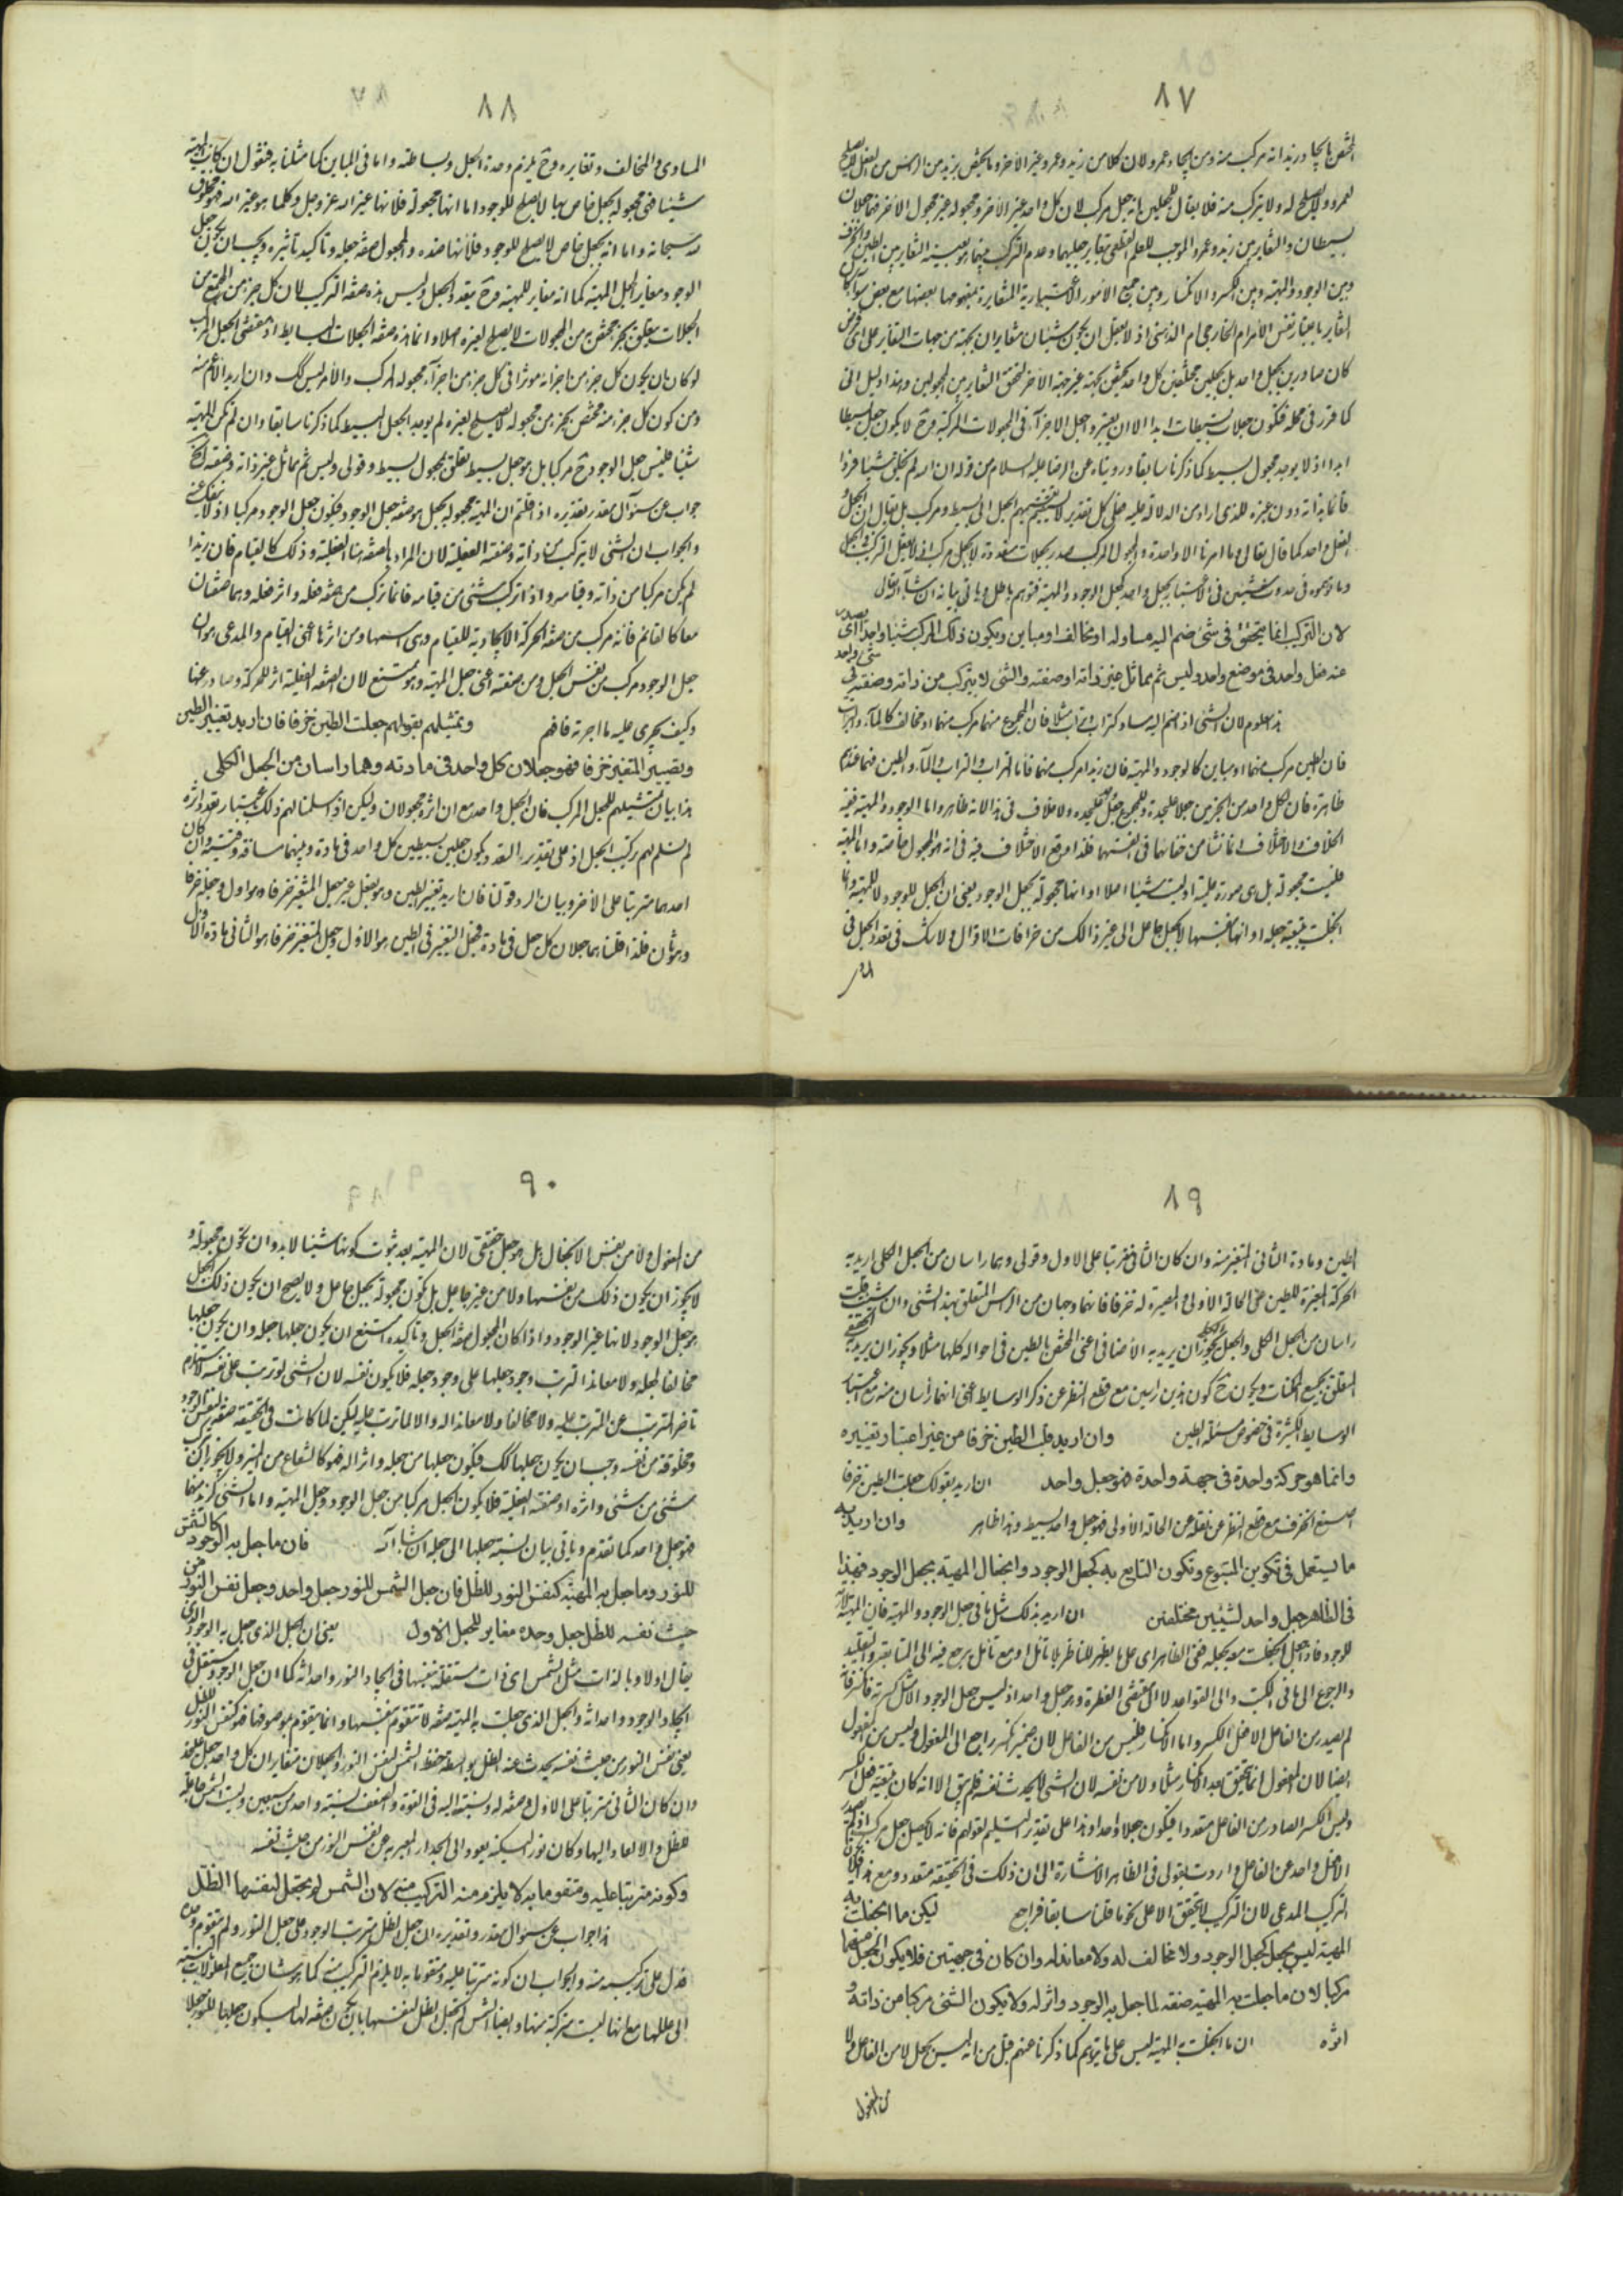 ٨٧
المختص بايجاد زيد انه مركب منه ومن ايجاد عمرو لان كلا من زيد وعمرو غير الآخر وما يختص بزيد من الرأس من الفعل لا يصلح
لعمرو ولا يصلح له ولا يتركب منه فلا يقال للجعلين انه جعل مركب لان كل واحد غير الآخر ومجعوله غير مجعول الآخر فهما جعلان
بسيطان والتغاير بين زيد وعمرو الموجب للعلم القطعى بتغاير جعليهما وعدم التركب منهما هو بعينه التغاير بين الطين والخزف
وبين الوجود والمهية وبين الكسر والانكسار وبين جميع الأمور الاعتبارية المتغايرة بمفهومها بعضها مع بعض سواء كان
التغاير باعتبار نفس الأمر ام الخارجى ام الذهنى اذ لا يعقل ان يكون شيئان متغايران بجهة من جهات التغاير على اى فرض
كان صادرين بجعل واحد بل بجعلين مختلفين كل واحد يختص بجهة غير جهة الآخر لتحقق التغاير بين المجعولين وهذا دليل انى
كما قرر فى محله فتكون جعلات بسيطات ابدا الا ان يعتبر وجعل الاجزآء فى المجعولات المركبة وح لا يكون جعل بسيطا
ابدا اذ لا يوجد مجعول بسيط كما ذكرنا سابقا وروينا عن الرضا عليه السلام من قوله ان الله لم يخلق شيئا فردا
قائما بذاته دون غيره للذى اراد من الدلالة عليه فعلى كل تقدير لا يتم تقسيمهم الجعل الى بسيط ومركب بل يقال ان الجعل
الفعل واحد كما قال تعالى وما امرنا الا واحدة والمجعول المركب صدر بجعلات متعددة لا بجعل مركب اذ لا يعقل التركب فى الجعل
وما توهموه فى حدوث شيئين فى الاعتبار بجعل واحد كجعل الوجود والمهية فتوهم باطل وياتى بيانه ان شاء الله تعالى
لان التركيب انما يتحقق فى شئ ضم اليه مساو له او مخالف او مباين ويكون ذلك المركب شيئا واحدا اى يصدر
عنه فعل واحد فى موضع واحد وليس ثم مماثل غير ذاته او صفته والشئ لا يتركب من ذاته وصفته فى شئ واحد
هذا معلوم لان الشئ اذا ضم اليه مساو كتراب الى تراب مثلا فان المجموع منهما مركب منهما او مخالف كالمآء والتراب
فان الطين مركب منهما او مباين كالوجود والمهية فان زيدا مركب منهما فاما التراب والتراب والمآء والطين فهما عندهم
ظاهرة فان لكل واحد من الجزئين جعلا على حدة وللمجموع جعل على حده ولا خلاف فى هذا لانه ظاهر واما الوجود والمهية ففيه
الخلاف والاختلاف انما نشأ من خفائهما فى انفسهما فلذا وقع الاختلاف فيه فى انه هو المجعول خاصة واما المهية
فليست مجعولة بل هى صورة علمية او ليست شيئا اصلا او انها مجعولة بجعل الوجود يعنى ان الجعل للوجود لا للمهية وانما
انجعلت بتبعية جعله او انها بنفسها لا بجعل جاعل الى غير ذلك من خرافات الاقوال ولا شك فى تعدد الجعل فى
المسا
٨٨
المساوى والمخالف وتغايره وح يلزم وحدة الجعل وبساطته واما فى المباين كما مثلنا به فنقول ان كانت المهية
شيئا فهى مجعولة بجعل خاص بها لا يصلح للوجود اما انها مجعولة فلانها غير الله عز وجل وكلما هو غير الله فهو مخلوق
لله سبحانه واما انه بجعل خاص لا يصلح للوجود فلأنها ضده والمجعول صفة جعله وتاكيد تاثيره ويجب ان يكون جعل
الوجود مغاير لجعل المهية كما انه مغاير للمهية وح يتعدد الجعل وليس هذه صفة التركيب لان كل جزء من المجتمع من
الجعلات يتعلق بجزء مختص من المجعولات لا يصلح لغيره اصلا وانما هذه صفة الجعلات البسايط اذ مقتضى الجعل المركب
لو كان ان يكون كل جزء من اجزائه موثرا فى كل جزء من اجزآء مجعوله المركب والأمر ليس كك وان اريد الأعم منه
ومن كون كل جزء منه مختص بجزء من مجعوله لا يصلح لغيره لم يوجد الجعل البسيط كما ذكرنا سابقا وان لم تكن المهية
شيئا فليس جعل الوجود ح مركبا بل هو جعل بسيط تعلق بمجعول بسيط وقولى وليس ثم مماثل غير ذاته وصفته الخ
جواب عن سئوال مقدر تقديره اذا قلتم ان المهية مجعولة بجعل هو صفة جعل الوجود فيكون جعل الوجود مركبا اذ لا ينفك عنه
والجواب ان الشئ لا يتركب من ذاته وصفته الفعلية لان المراد بالصفة هنا الفعلية وذلك كالقيام فان زيدا
لم يكن مركبا من ذاته وقيامه واذا تركب شئ من قيامه فانما تركب من صفة فعله واثر فعله وهما صفتان
معا كالقائم فانه مركب من صفة الحركة الايجادية للقيام وهى اسمها ومن اثرها اعنى القيام والمدعى هو ان
جعل الوجود مركب من نفس الجعل ومن صفته اعنى جعل المهية وهو ممتنع لان الصفة الفعلية اثر للحركة وصادر عنها
وكيف يجرى عليه ما اجرته فافهم وتمثيلهم بقولهم جعلت الطين خزفا فان اريد تغيير الطين
وتصيير المتغير خزفا فهو جعلان كل واحد فى مادته وهما راسان من الجعل الكلى
هذا بيان تمثيلهم للجعل المركب فان الجعل واحد مع ان اثره مجعولان ولكن اذا سلمنا لهم ذلك باعتبار تعدد اثره
لم نسلم لهم تركيب الجعل اذ على تقدير التعدد يكون جعلين بسيطين كل واحد فى مادة وبينهما مساوقة وقتية وان كان
احدهما مترتبا على الآخر وبيان الرد قولنا فان اريد تغيير الطين وهو بفعل غير جعل المتغير خزفا وهو اول وجعله خزفا
وهو ثان فلذا قلنا هما جعلان كل جعل فى مادة فجعل التغير فى الطين هو الأول وجعل المتغير خزفا هو الثانى فى مادة الأول
٨٩
الطين ومادة الثانى المتغير منه وان كان الثانى مترتبا على الاول وقولى وهما راسان من الجعل الكلى اريد به
الحركة المغيرة للطين عن الحالة الأولى والمصيرة له خزفا فانهما وجهان من الرأس المتعلق بهذا الشئ وان شئت قلت
راسان من الجعل الكلى والجعل الكلى يجوز ان يريد به الأضافى اعنى المختص بالطين فى احواله كلها مثلا ويجوز ان يريد به الحقيقى
المتعلق بجميع الممكنات ويكون ح كون هذين راسين مع قطع النظر عن ذكر الوسايط يعنى انهما رأسان منه مع اعتبار
الوسايط الكثيرة فى خصوص مسئلة الطين وان اريد جعل الطين خزفا من غير اعتبار تغييره
وانما هو حركة واحدة فى جهة واحدة فهو جعل واحد ان اريد بقولك جعلت الطين خزفا
اصنع الخزف مع قطع النظر عن نقله عن الحالة الأولى فهو جعل واحد بسيط وهذا ظاهر وان اريد به
ما يستعمل فى تكوين المتبوع وتكون التابع به كجعل الوجود وانجعال المهية بجعل الوجود فهذا
فى الظاهر جعل واحد لشيئين مختلفين ان اريد بذلك مثل ما فى جعل الوجود والمهية فان المهية تلازمه
للوجود فاذا جعل انجعلت معه بجعله ففى الظاهر اى على ما يظهر للناظر بلا تامل او مع تامل يرجع فيه الى المتابعة والتقليد
والرجوع الى ما فى الكتب والى القواعد لا الى مقتضى الفطرة وهو جعل واحد اذ ليس جعل الوجود الا مثل كسرته فانكسر فانه
لم يصدر من الفاعل الا فعل الكسر واما الانكسار فليس من الفاعل لان ضمير انكسر راجع الى المفعول وليس من المفعول
ايضا لان المفعول انما تحقق بعد الانكسار مثلا ولا من نفسه لان الشئ لا يحدث نفسه فلم يبق الا انه كان بتبعية فعل الكسر
وليس الكسر الصادر من الفاعل متعددا فيكون جعلا واحدا وهذا على تقدير التسليم لقولهم فانه لا يحصل جعل مركب اذ لم يصدر
الا فعل واحد عن الفاعل واردت بقولى فى الظاهر الاشارة الى ان ذلك فى الحقيقة متعدد ومع هذا فلا يكون
التركيب المدعى لان التركيب لا يتحقق الا على نحو ما قلنا سابقا فراجع ليكن ما انجعلت به
المهية ليس بجعل كجعل الوجود ولا مخالف له ولا معاند له وان كان فى جهتين فلا يكون الجعل منهما
مركبا لان ما جعلت به المهية صفة لما جعل به الوجود واثر له ولا يكون الشئ مركبا من ذاته و
اثره ان ما انجعلت به المهية ليس على ما يتوهم كما ذكرنا عنهم قبل من انه ليس بجعل لا من الفاعل ولا
من المفعول
٩٠
من المفعول ولا من نفس الانجعال بل هو جعل حقيقى لان المهية بعد ثبوت كونها شيئا لا بد وان تكون مجعولة و
لا يجوز ان يكون ذلك من نفسها ولا من غير جاعل بل تكون مجعولة بجعل جاعل ولا يصح ان يكون ذلك الجعل
هو جعل الوجود لانها غير الوجود واذا كان المجعول صفة الجعل وتاكيده امتنع ان يكون جعلها جعله وان يكون جعلها
مخالفا لجعله ولا معاندا لترتب وجود جعلها على وجود جعله فلا يكون نفسه لان الشئ لا يترتب على نفسه لاستلزام
تاخر المترتب عن المترتب عليه ولا مخالفا ولا معاندا له والا لما ترتب عليه ليكن لما كانت فى الحقيقة صفة لنفس الوجود
ومخلوقة من نفسه وجب ان يكون جعلها كك فيكون جعلها من جعله واثرا له فهو كالشعاع من المنير ولا يجوز ان يتركب
شئ من شئ واثره او صفته الفعلية فلا يكون الجعل مركبا من جعل الوجود وجعل المهية واما الشئ كزيد منهما
فهو جعل واحد كما تقدم وياتى بيان نسبة جعلها الى جعله ان شاء الله فان ما جعل به الوجود كالشمس
للنور وما جعل به المهية كنفس النور للظل فان جعل الشمس للنور جعل واحد وجعل نفس النور من
حيث نفسه للظل جعل وحده مغاير للجعل الاول يعنى ان الجعل الذى جعل به الوجود الذى
يقال اولا وبالذات مثل الشمس اى ذات مستقلة بنفسها فى ايجاد النور واحداثه كما ان جعل الوجود مستقل فى
ايجاد الوجود واحداثه والجعل الذى جعلت به المهية صفة لا تتقوم بنفسها وانما يتقوم بموصوفها فهو كنفس النور للظل
يعنى نفس النور من حيث نفسه يحدث عنه الظل بواسطة حفظ الشمس لنفس النور والجعلان متغايران كل واحد جعل على حدة
وان كان الثانى مترتبا على الاول وصفة له ونسبته اليه فى القوة والضعف نسبة واحد من سبعين وليست الشمس جاعلة
للظل والا لعاد اليها وكان نور السكينة يعود الى الجدار المعبر به عن نفس النور من حيث نفسه
وكونه مترتبا عليه ومتقوما به لا يلزم منه التركيب منه لان الشمس لم تجعل لنفسها الظل
هذا جواب عن سئوال مقدر وتقديره ان جعل الظل مترتب الوجود على جعل النور ولم يتقوم بدونه
فدل على تركيبه منه والجواب ان كونه مترتبا عليه ومتقوما به لا يلزم التركيب منه كما هو شان جميع المعلولات بالنسبة
الى عللها مع انها ليست مركبة منها وايضا الشمس لم تجعل الظل لنفسها بان يكون صفة لها ليكون جعلها للنور جعلا